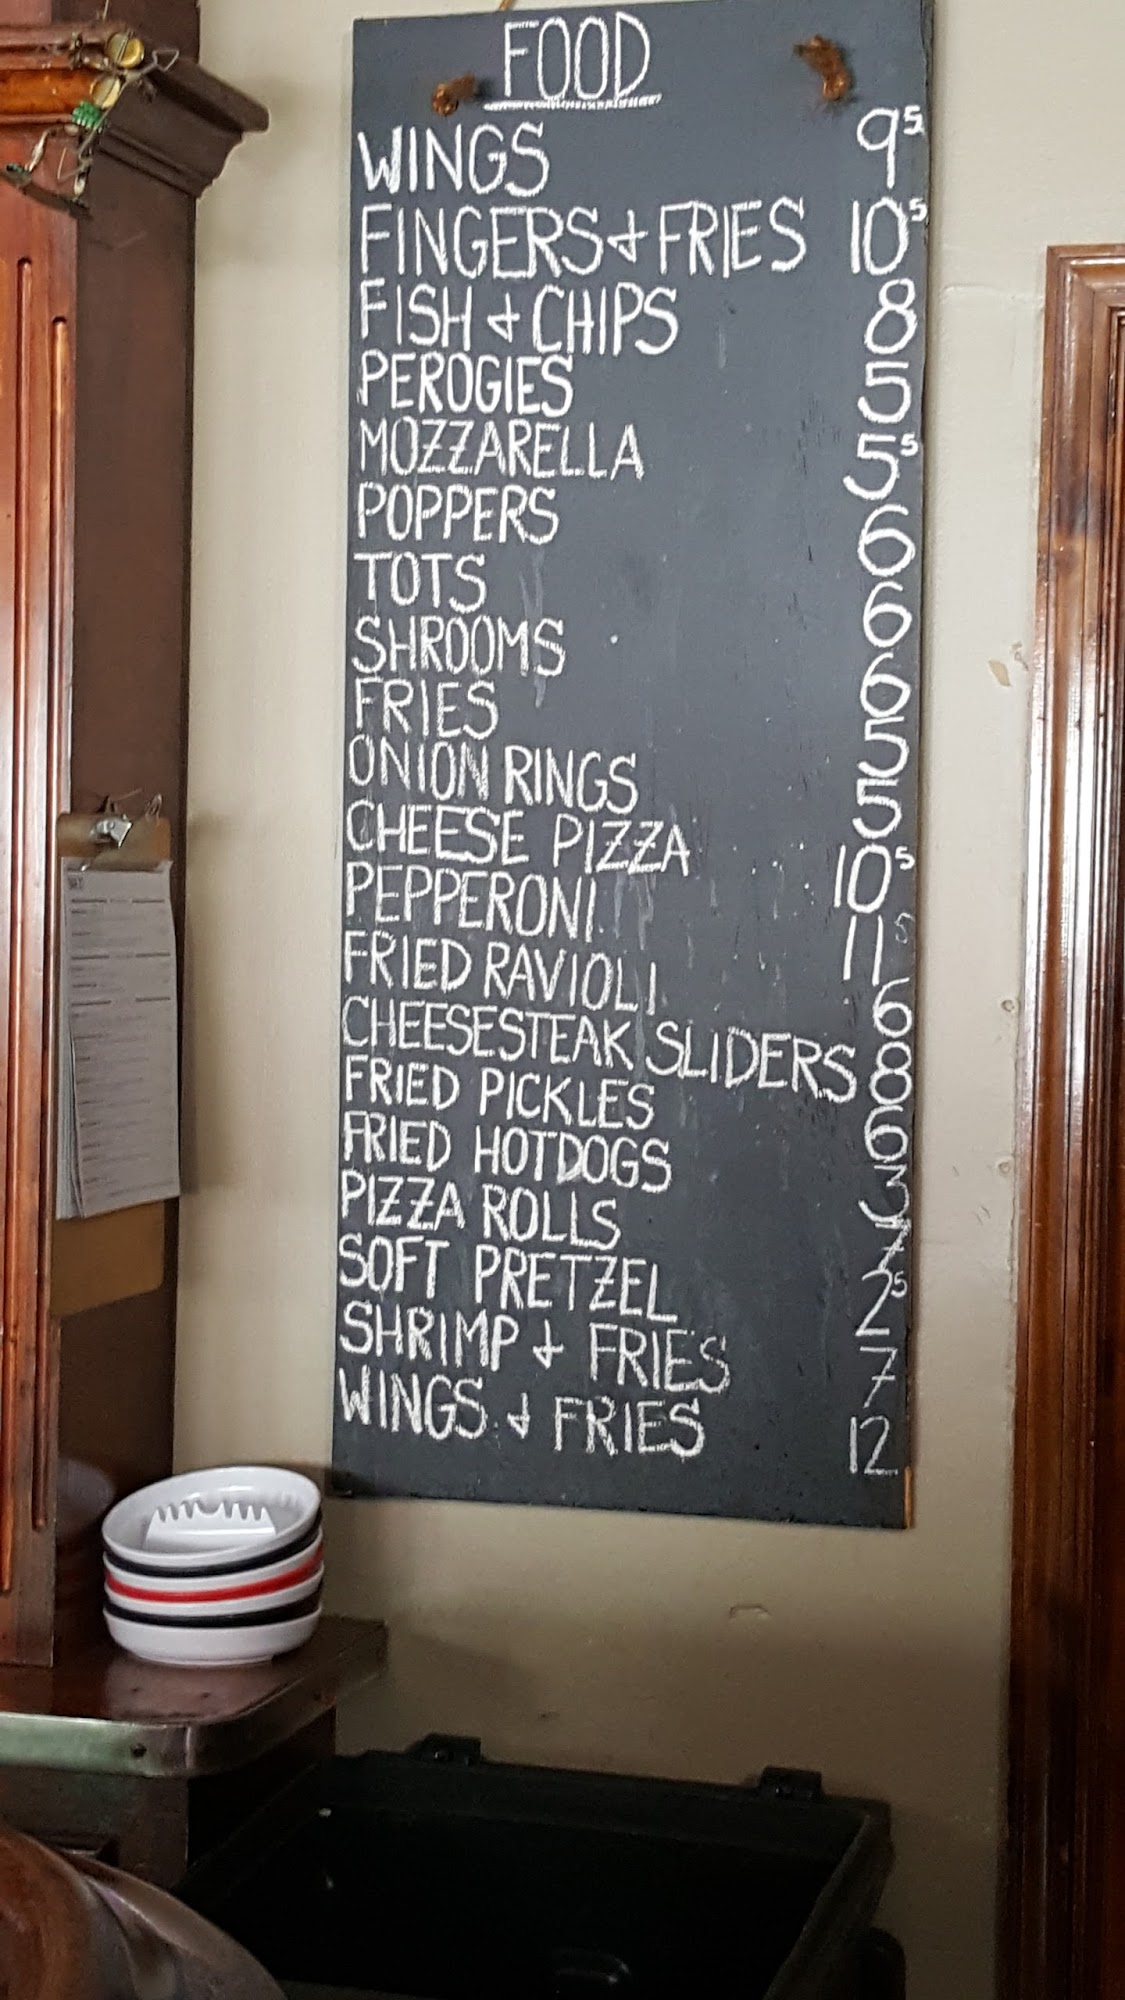 FOOD
WINGS 9⁵
FINGERS & FRIES 10⁵
FISH & CHIPS 8
PEROGIES 5
MOZZARELLA 5⁵
POPPERS 6
TOTS 6
SHROOMS 6
FRIES 5
ONION RINGS 5
CHEESE PIZZA 10⁵
PEPPERONI 11⁵
FRIED RAVIOLI 6
CHEESESTEAK SLIDERS 8
FRIED PICKLES 6
FRIED HOTDOGS 3
PIZZA ROLLS 7
SOFT PRETZEL 2⁵
SHRIMP & FRIES 7
WINGS & FRIES 12